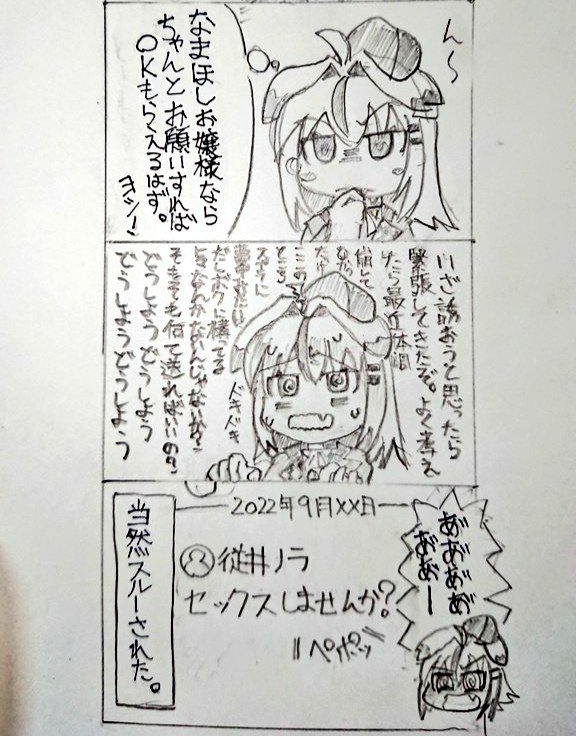 ん〜
なまほしお嬢様なら
ちゃんとお願いすれば
OKもらえるはず。
ヨシ!
いざ誘おうと思ったら
緊張してきたぞ。よく考え
たら最近体調
崩して
たし
ここの
ところ
スタミに
夢中みたい
だしボクに構ってる
ときなんかないんじゃないか?
そもそも何て送ればいいの?
どうしようどうしよう
どうしようどうしよう
ドキドキ
2022年9月XX日
従井ノラ
セックスしませんか?
ペポッ
あ゛あ゛あ゛あ゛
あ゛あ゛ー
当然スルーされた。